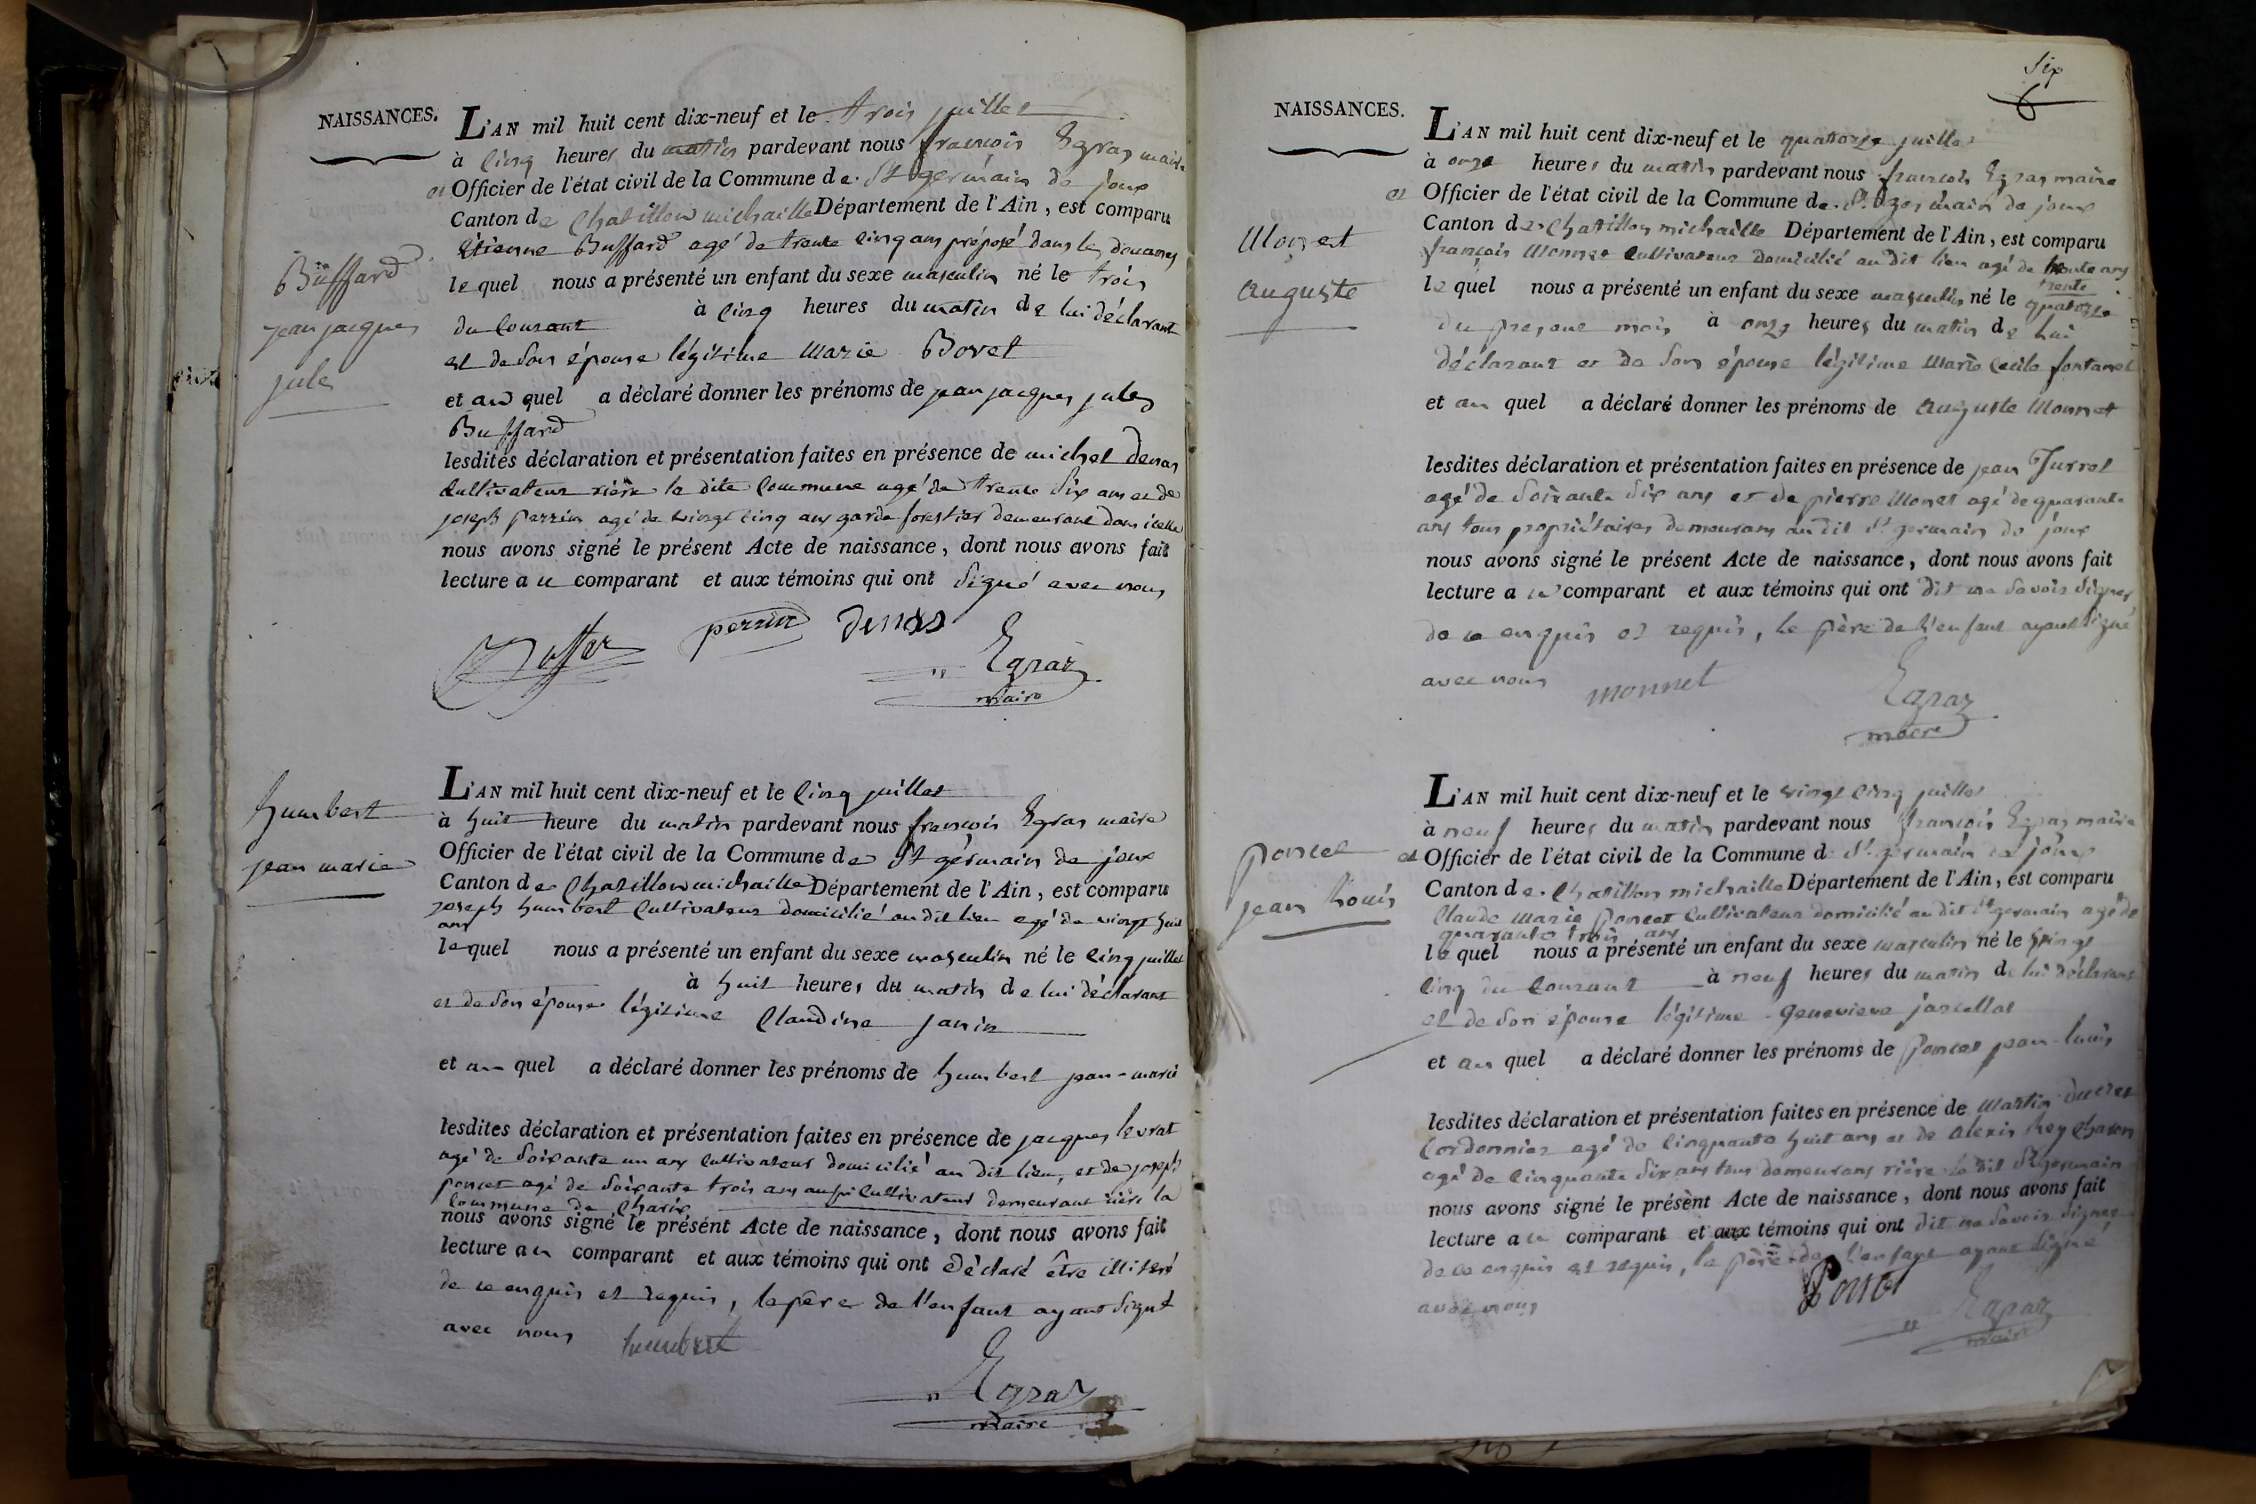 NAISSANCES.
Buffard
jean jacques
jules
L'AN mil huit cent dix-neuf et le trois juillet
à cinq heures du matin pardevant nous françois Egraz maire
et Officier de l'état civil de la Commune de St germain de joux
Canton de Chatillon michaille Département de l'Ain, est comparu
Etienne Buffard agé de trente cinq ans préposé dans les douanes
lequel nous a présenté un enfant du sexe masculin né le trois
du courant à cinq heures du matin de lui déclarant
et de son épouse légitime Marie Bovet
et au quel a déclaré donner les prénoms de jean jacques jules
Buffard
lesdites déclaration et présentation faites en présence de michel
cultivateur rière la dite commune agé de trente six ans et de
joseph perrin agé de vingt cinq ans garde forestier demeurant dans icelle
nous avons signé le présent Acte de naissance, dont nous avons fait
lecture au comparant et aux témoins qui ont signé avec nous
perrin
Egraz
maire
humbert
jean marie
L'AN mil huit cent dix-neuf et le cinq juillet
à huit heure du matin pardevant nous françois Egraz maire
Officier de l'état civil de la Commune de St germain de joux
Canton de Chatillon michaille Département de l'Ain, est comparu
joseph humbert cultivateur domicilié au dit lieu agé de vingt huit
ans
lequel nous a présenté un enfant du sexe masculin né le cinq juillet
à huit heures du matin de lui déclarant
et de son épouse légitime Claudine janin
et au quel a déclaré donner les prénoms de humbert jean-marie
lesdites déclaration et présentation faites en présence de jacques levrat
agé de soixante un ans cultivateur domicilié au dit lieu, et de joseph
poncet agé de soixante trois ans aussi cultivateur demeurant rière la
commune de Charix
nous avons signé le présent Acte de naissance, dont nous avons fait
lecture au comparant et aux témoins qui ont déclaré être illiteré
de ce enquis et requis, le père de l'enfant ayant signé
avec nous humbert
Egraz
maire
Six
6
NAISSANCES.
Monet
auguste
L'AN mil huit cent dix-neuf et le quatorze juillet
à onze heures du matin pardevant nous françois Egraz maire
et Officier de l'état civil de la Commune de St germain de joux
Canton de Chatillon michaille Département de l'Ain, est comparu
françois Monnet cultivateur domicilié au dit lieu agé de trente ans
trente
lequel nous a présenté un enfant du sexe masculin né le quatorze
du present mois à onze heures du matin de lui
déclarant et de son épouse légitime Marie Cecile fontanel
et au quel a déclaré donner les prénoms de auguste Monnet
lesdites déclaration et présentation faites en présence de jean
agé de soixante six ans et de pierre Monet agé de quarante
ans tous propriétaires demeurans au dit St germain de joux
nous avons signé le présent Acte de naissance, dont nous avons fait
lecture au comparant et aux témoins qui ont dit ne savoir signer
de ce enquis et requis, le père de l'enfant ayant signé
avec nous monnet
Egraz
maire
poncet
jean Louis
L'AN mil huit cent dix-neuf et le vingt cinq juillet
à neuf heures du matin pardevant nous françois Egraz maire
et Officier de l'état civil de la Commune de St germain de joux
Canton de Chatillon michaille Département de l'Ain, est comparu
Claude Marie poncet cultivateur domicilié au dit St germain agé de
quarante trois ans
lequel nous a présenté un enfant du sexe masculin né le vingt
cinq du courant à neuf heures du matin de lui déclarant
et de son épouse légitime genevieve
et au quel a déclaré donner les prénoms de poncet jean-louis
lesdites déclaration et présentation faites en présence de Martin ducret
Cordonnier agé de cinquante huit ans et de alexis Rey
agé de cinquante six ans tous demeurans rière le dit St germain
nous avons signé le présent Acte de naissance, dont nous avons fait
lecture au comparant et aux témoins qui ont dit ne savoir signer
de ce enquis et requis, le père de l'enfant ayant signé
avec nous
Egraz
maire